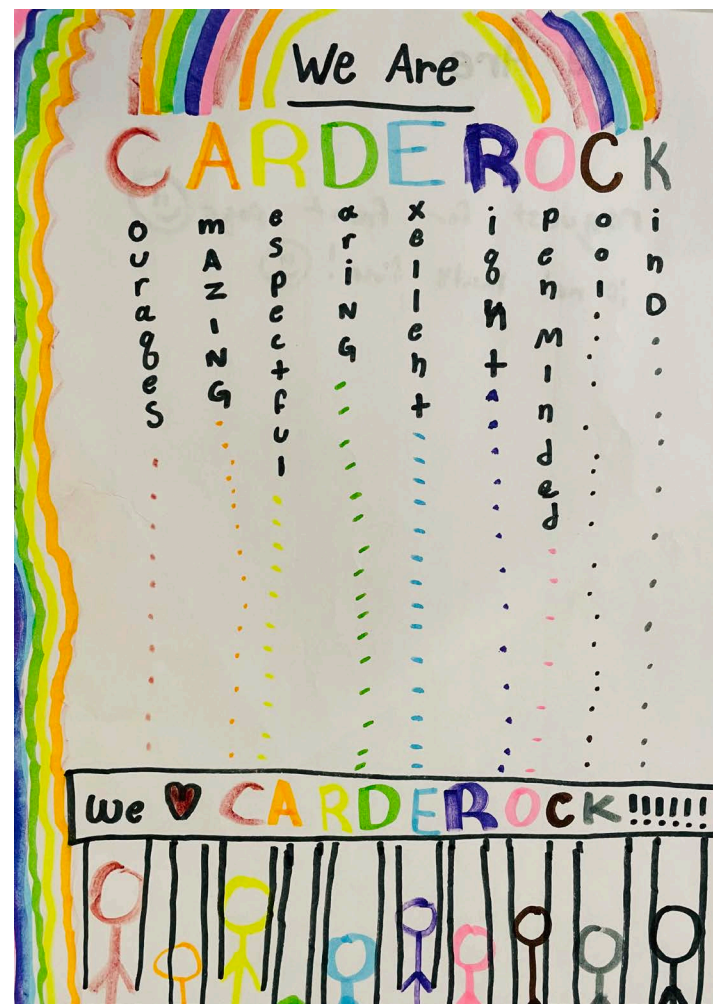 We Are
CARDEROCK
ourageS
mAZING
espectful
ariNG
xellent
ight
penMInded
ool
inD
We ♥ CARDEROCK!!!!!!